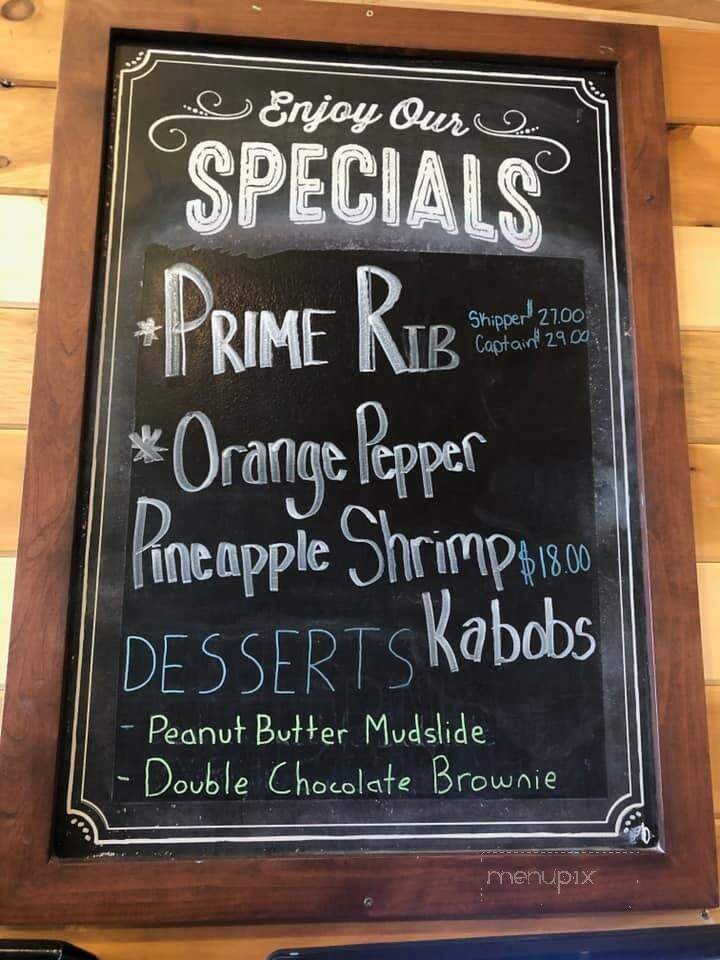 Enjoy Our
SPECIALS
* PRIME RIB
Skipper $ 27.00
Captain $ 29.00
* Orange Pepper
Pineapple Shrimp $18.00
Kabobs
DESSERTS
- Peanut Butter Mudslide
- Double Chocolate Brownie
menupix